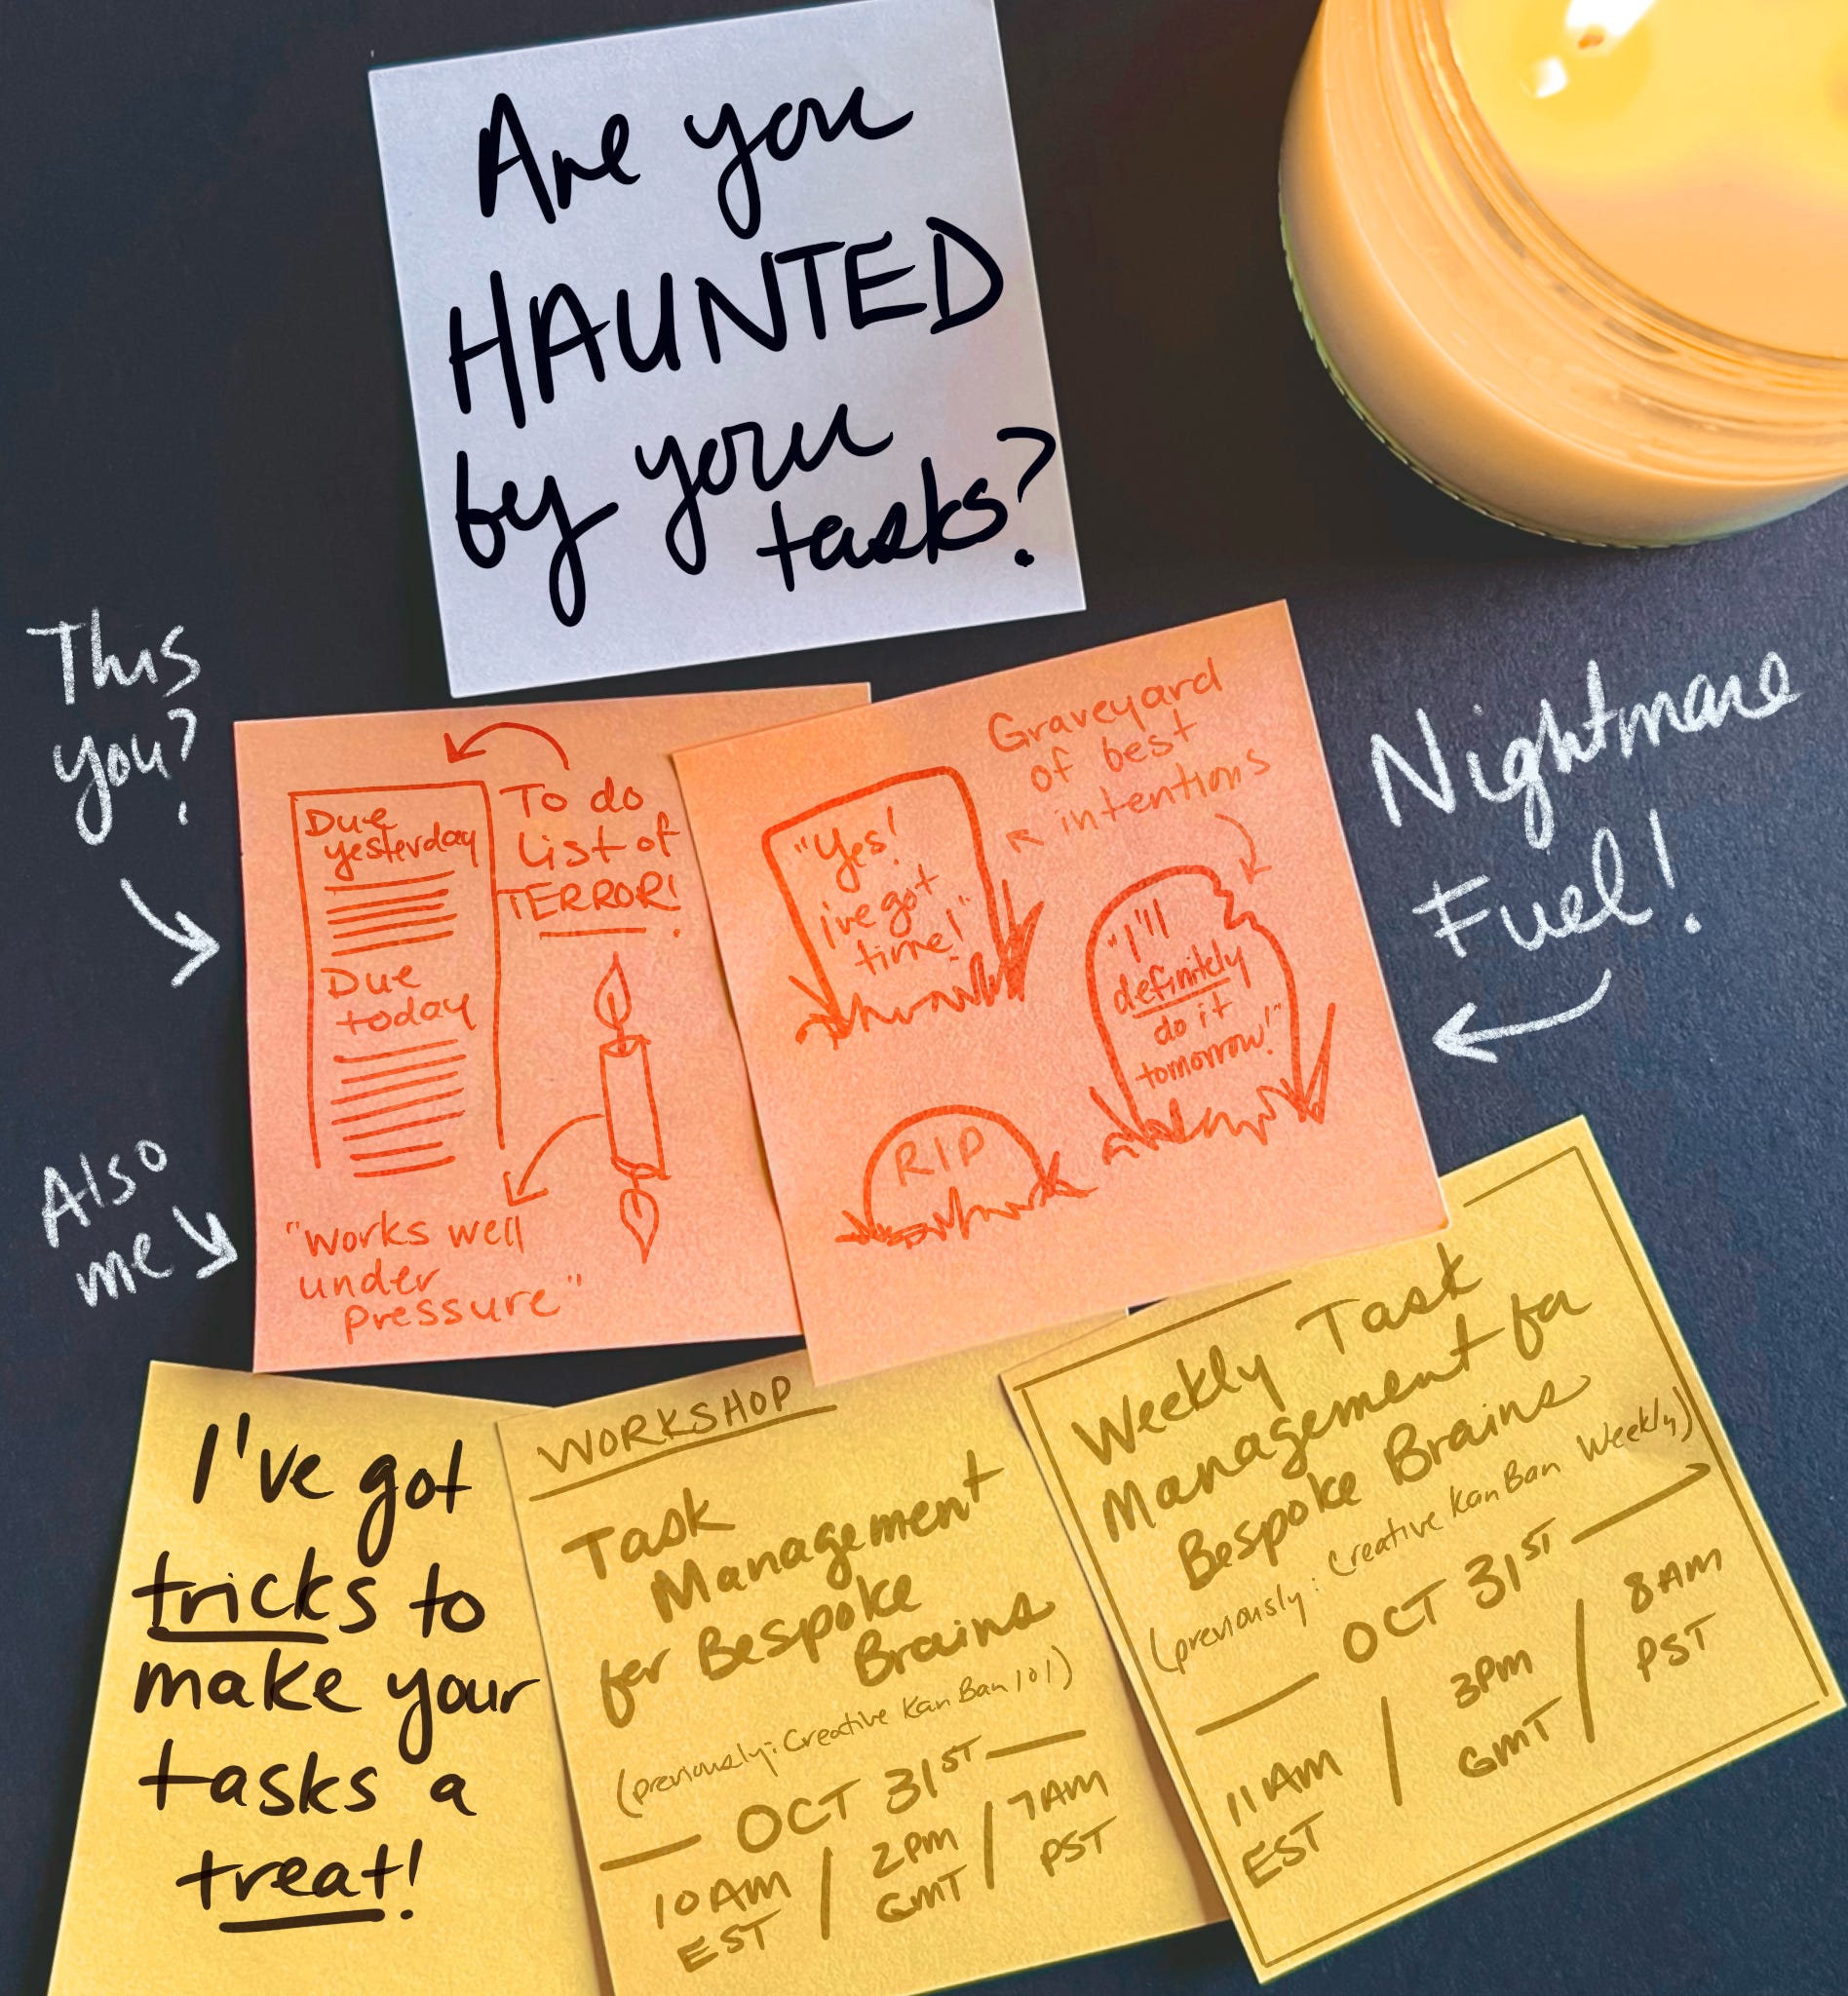 Are you
HAUNTED
by your
tasks?
This
you?
To do
List of
TERROR!
Due
yesterday
Due
today
Also
me
"Works well
under
pressure"
Graveyard
of best
intentions
"Yes!
i've got
time!"
"I'll
definitely
do it
tomorrow!"
RIP
Nightmare
Fuel!
I've got
tricks to
make your
tasks a
treat!
WORKSHOP
Task
Management
for Bespoke
Brains
(previously: Creative KanBan 101)
OCT 31ST
10AM / 2PM / 7AM
EST GMT PST
Weekly Task
Management for
Bespoke Brains
(previously: Creative KanBan Weekly)
OCT 31ST
11AM / 3PM / 8AM
EST GMT PST